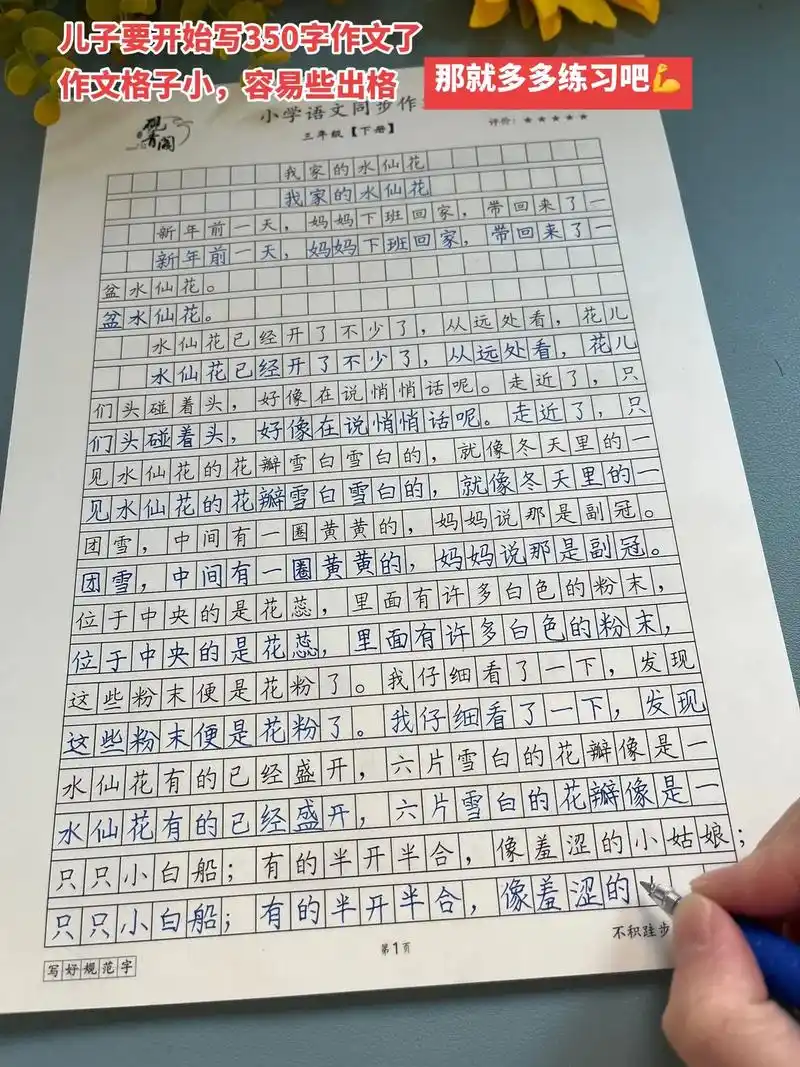 儿子要开始写350字作文了
作文格子小，容易些出格
那就多多练习吧💪
砚青阁
小学语文同步作
三年级【下册】
评价：★★★★★
我家的水仙花
我家的水仙花
新年前一天，妈妈下班回家，带回来了一
新年前一天，妈妈下班回家，带回来了一
盆水仙花。
盆水仙花。
水仙花已经开了不少了，从远处看，花儿
水仙花已经开了不少了，从远处看，花儿
们头碰着头，好像在说悄悄话呢。走近了，只
们头碰着头，好像在说悄悄话呢。走近了，只
见水仙花的花瓣雪白雪白的，就像冬天里的一
见水仙花的花瓣雪白雪白的，就像冬天里的一
团雪，中间有一圈黄黄的，妈妈说那是副冠。
团雪，中间有一圈黄黄的，妈妈说那是副冠。
位于中央的是花蕊，里面有许多白色的粉末，
位于中央的是花蕊，里面有许多白色的粉末，
这些粉末便是花粉了。我仔细看了一下，发现
这些粉末便是花粉了。我仔细看了一下，发现
水仙花有的已经盛开，六片雪白的花瓣像是一
水仙花有的已经盛开，六片雪白的花瓣像是一
只只小白船；有的半开半合，像羞涩的小姑娘；
只只小白船；有的半开半合，像羞涩的
写好规范字
第1页
不积跬步